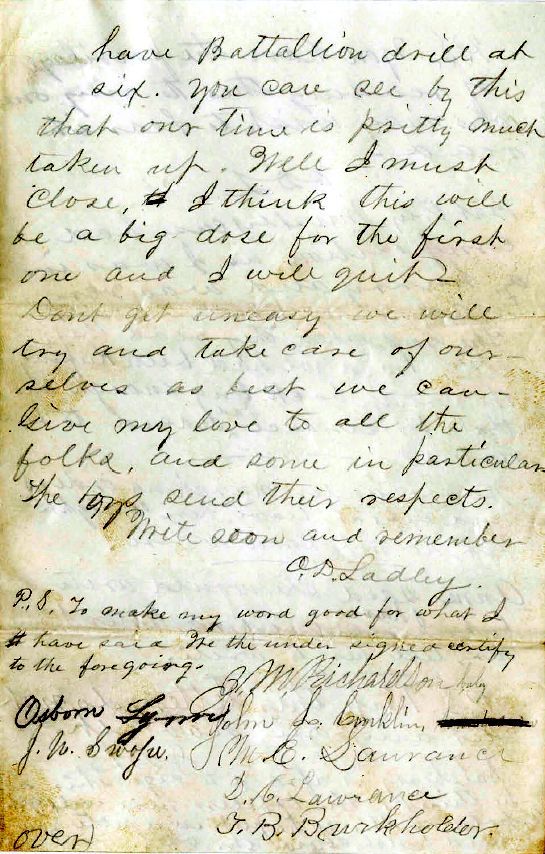 have Battallion drill at
six. You can see by this
that our time is pritty much
taken up. Well I must
close, I think this will
be a big dose for the first
one and I will quit
Dont get uneasy we will
try and take care of our-
selves as best we can-
Give my love to all the
folks, and some in particular
The boys send their respects.
Write soon and remember
O.D. Ladley.
P.S. To make my word good for what I
have said We the under signed certify
to the foregoing.
J. M. Richardson
Osborn Lyons John L. Conklin,
J. W. M. C. Lawrance
D. C. Lawrance
T. B. Burkholder.
over)